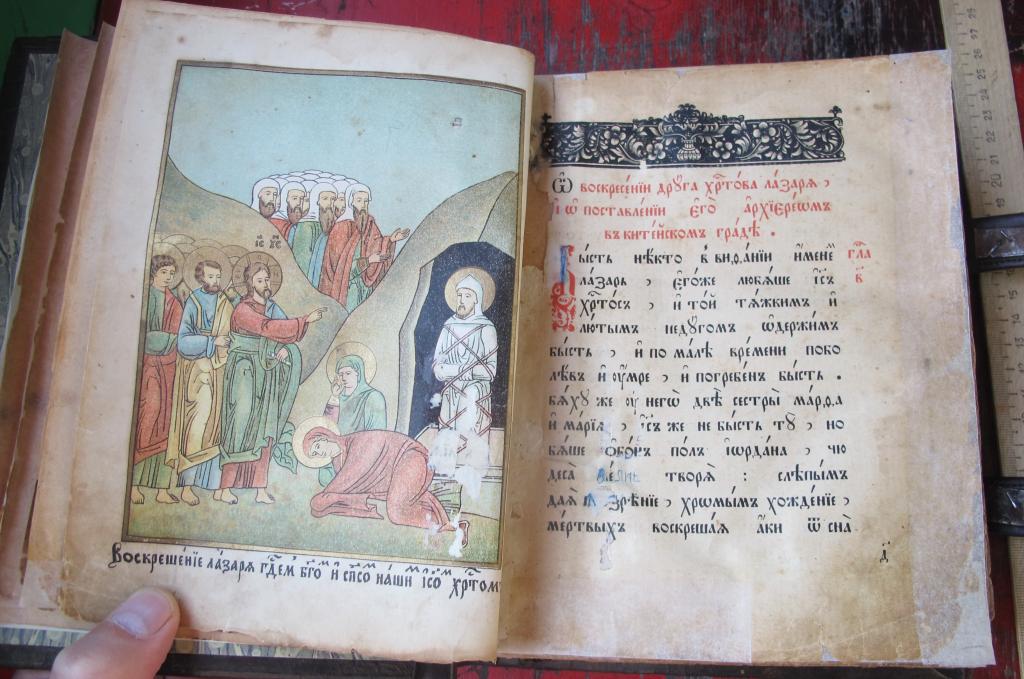 І҃С Х҃С
Воскреше́нїе ла́заря гд҇ем бг҃о и҆ спсо на́ши і҆со хр҇то́м
Ѿ воскресе́нїи дрꙋ́га хрⷭ҇то́ва ла́заря,
и҆ ѡ҆ поставле́нїи є҆гѡ̀ а҆рхїере́ѡмъ
въ кита́йском гра́дѣ.
Бы́сть нѣ́кто в виѳа́нїи и҆́мене гла
ла́зарь, є҆го́же любѧ́ше і҆с҃ъ в҃
хрⷭ҇то́съ, и҆ то́й тѧ́жкимъ и҆
лю́тымъ недꙋ́гомъ ѡ҆держи́мъ
бы́сть, и҆ по ма́лѣ вре́мени побо
лѣ́въ и҆ ᲂу҆́мре, и҆ погребе́нъ бы́сть.
бѧ́хꙋ же ᲂу҆ негѡ̀ двѣ̀ сестры̀ ма́рѳа
и҆ марі́ѧ, і҆с҃ъ же не бы́сть тꙋ̀, но
бѧ́ше ѡ҆бо́нъ по́лъ і҆ѡрда́на, чю
деса̀ ве́лїѧ творѧ̀: слѣпы́мъ
даѧ̀ прозрѣ́нїе, хрѡмы́мъ хожде́нїе,
ме́ртвыхъ воскреша́ѧ а҆́ки ѿ сна̀
д҃